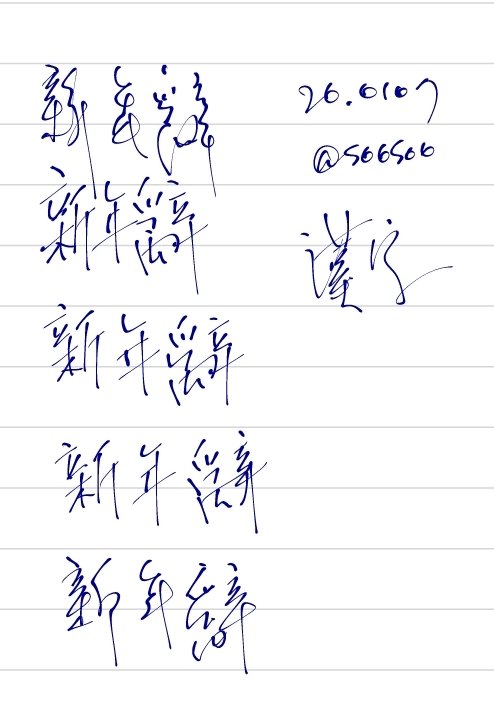 新年辭
26.0107
@soosoo
新年辭
漢字
新年辭
新年辭
新年辭